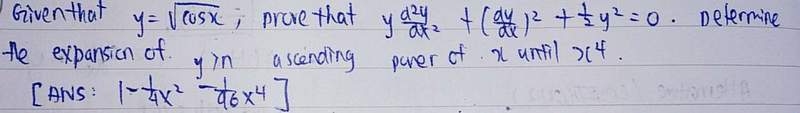 Given that y = √cosx ; prove that y d²y/dx² + (dy/dx)² + ½y² = 0. Determine
the expansion of y in ascending power of x until x⁴.
[ANS: 1 - ¼x² - 1/96 x⁴]